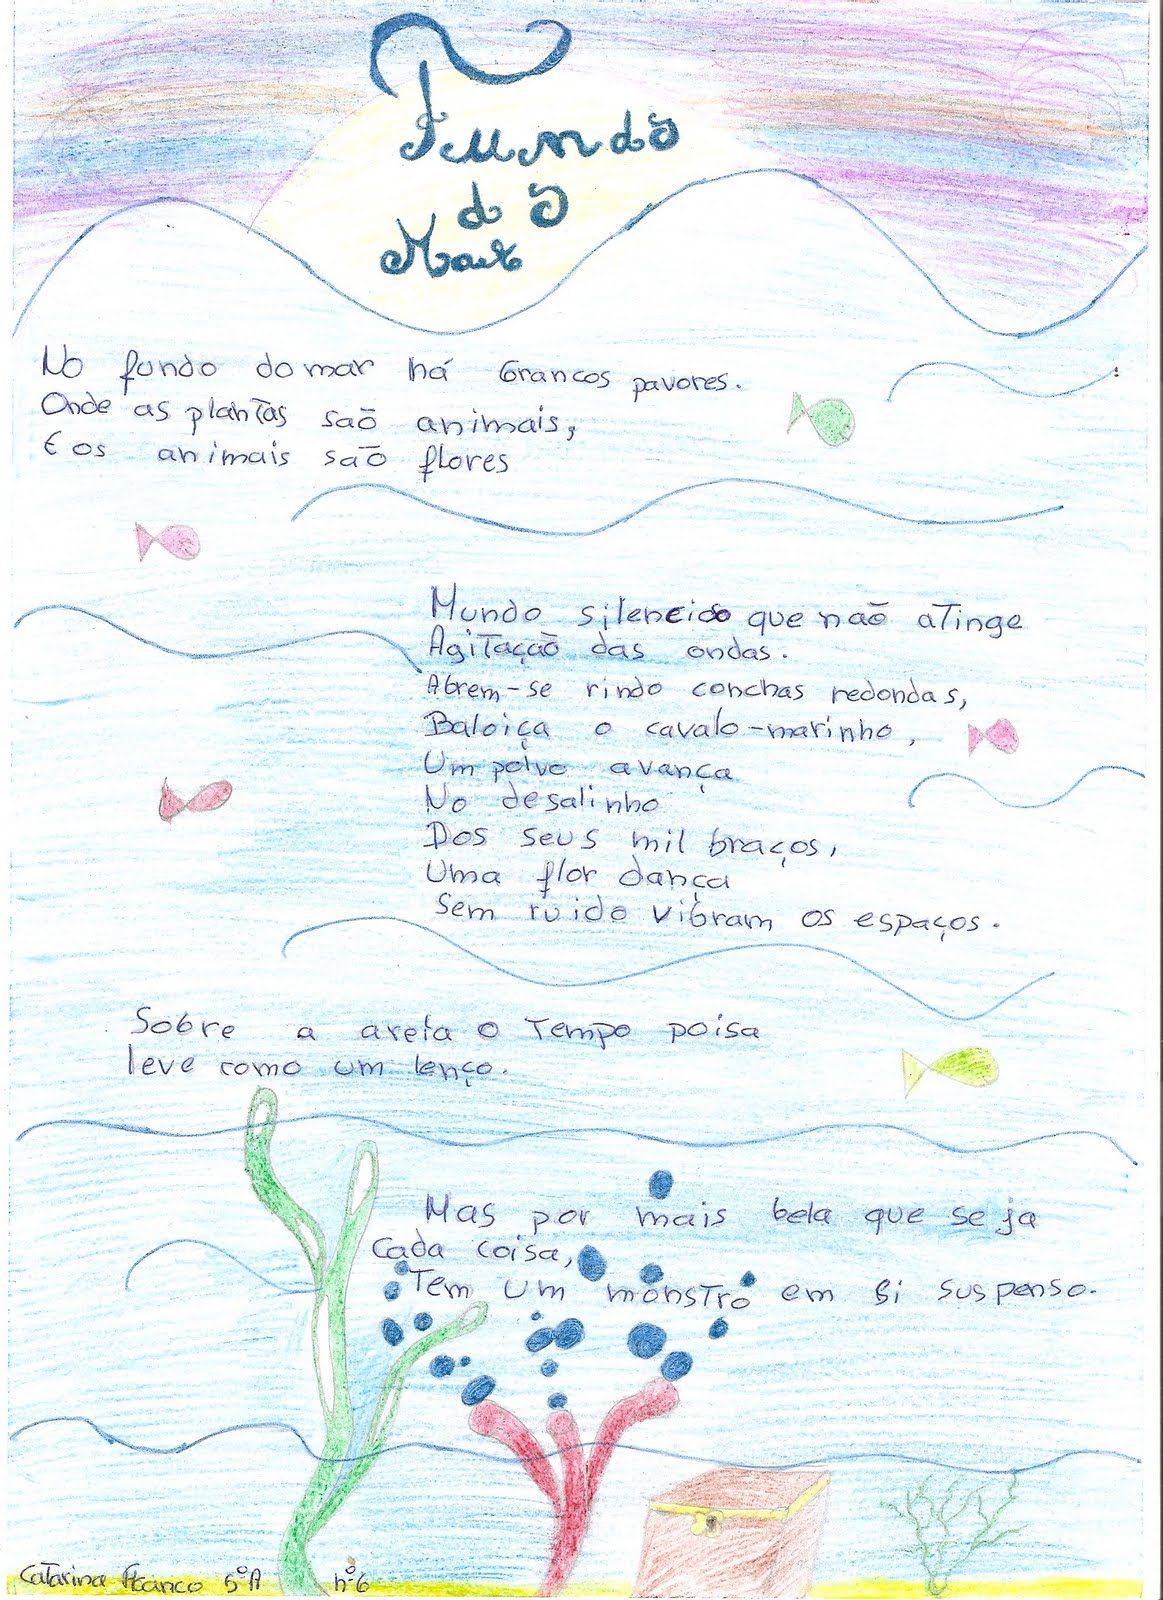 Fundo
do
Mar
No fundo do mar há brancos pavores.
Onde as plantas saõ animais,
E os animais saõ flores
Mundo silencioso que naõ atinge
Agitaçaõ das ondas.
Abrem-se rindo conchas redondas,
Baloiça o cavalo-marinho,
Um polvo avança
No desalinho
Dos seus mil braços,
Uma flor dança
Sem ruido vibram os espaços.
Sobre a areia o tempo poisa
leve como um lenço.
Mas por mais bela que seja
cada coisa,
Tem um monstro em si suspenso.
Catarina Franco 5ºA nº6